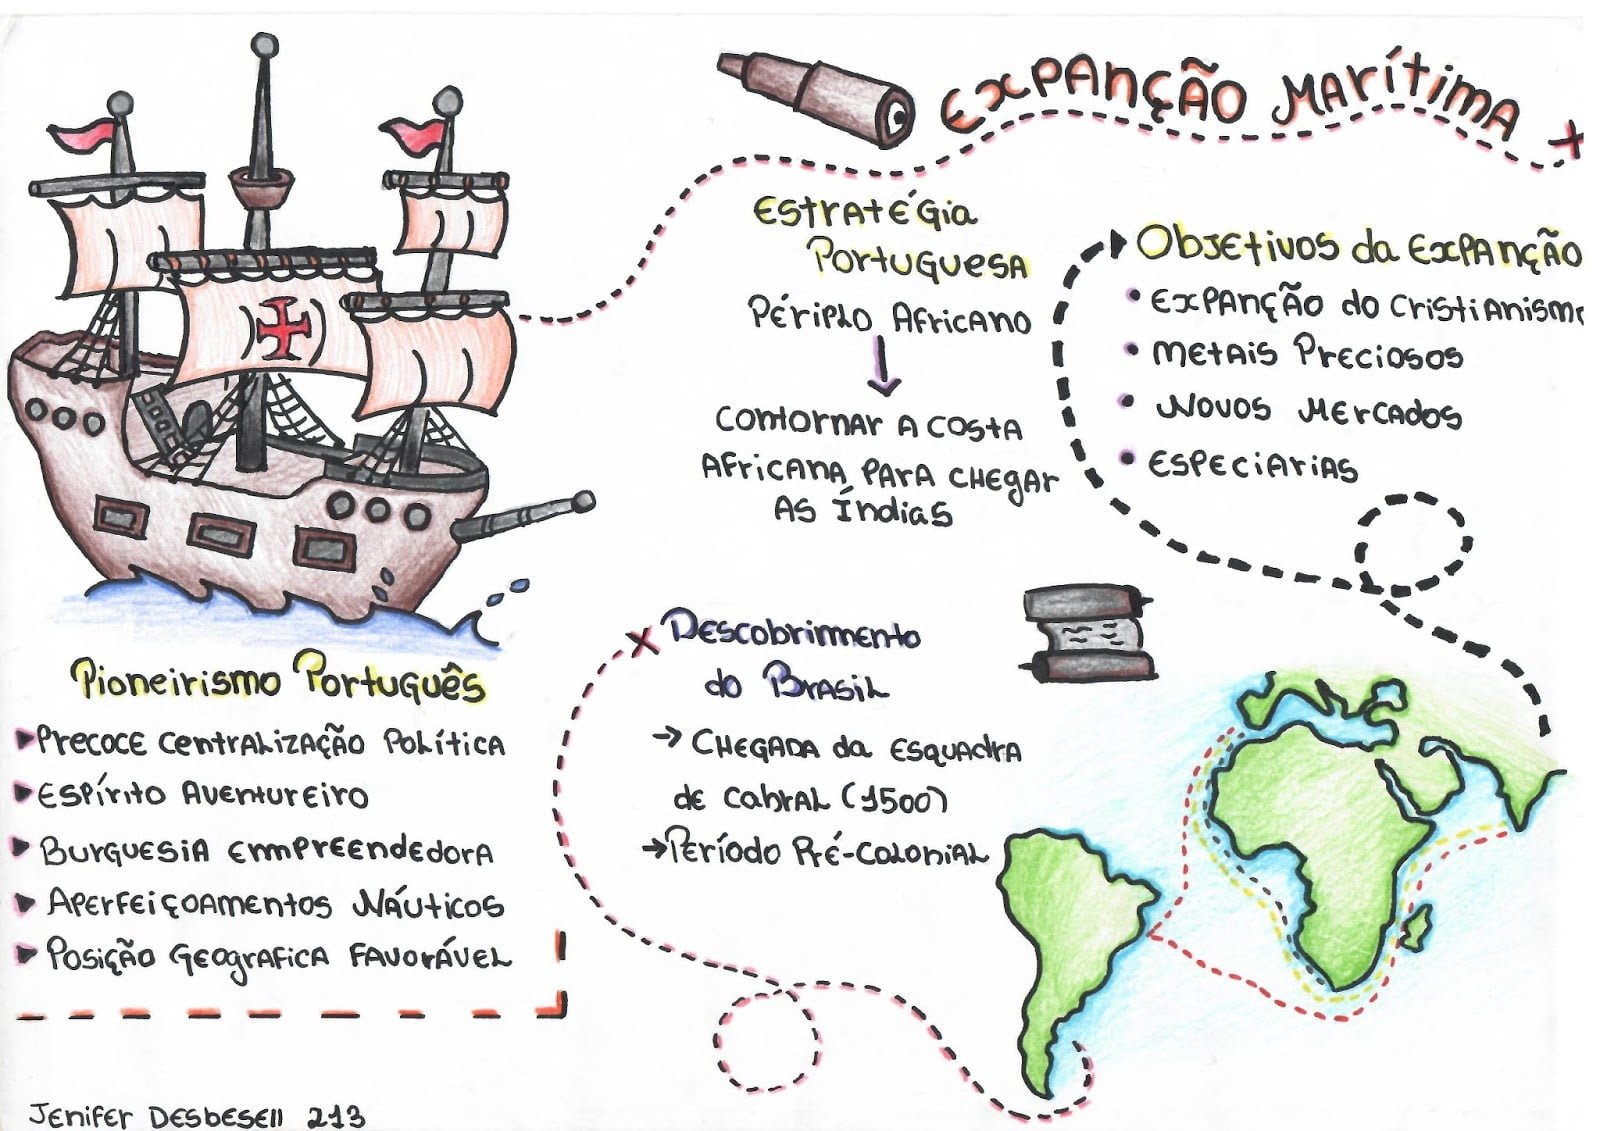 EXPANÇÃO MARÍTIMA
ESTRATÉGIA
PORTUGUESA
PÉRIPLO AFRICANO
CONTORNAR A COSTA
AFRICANA PARA CHEGAR
AS ÍNDIAS
OBJETIVOS DA EXPANÇÃO
• EXPANÇÃO DO CRISTIANISM
• METAIS PRECIOSOS
• NOVOS MERCADOS
• ESPECIARIAS
PIONEIRISMO PORTUGUÊS
PRECOCE CENTRALIZAÇÃO POLÍTICA
ESPÍRITO AVENTUREIRO
BURGUESIA EMPREENDEDORA
APERFEIÇOAMENTOS NÁUTICOS
POSIÇÃO GEOGRAFICA FAVORÁVEL
DESCOBRIMENTO
DO BRASIL
→ CHEGADA DA ESQUADRA
DE CABRAL (1500)
→ PERÍODO PRÉ-COLONIAL
JENIFER DESBESELL 213